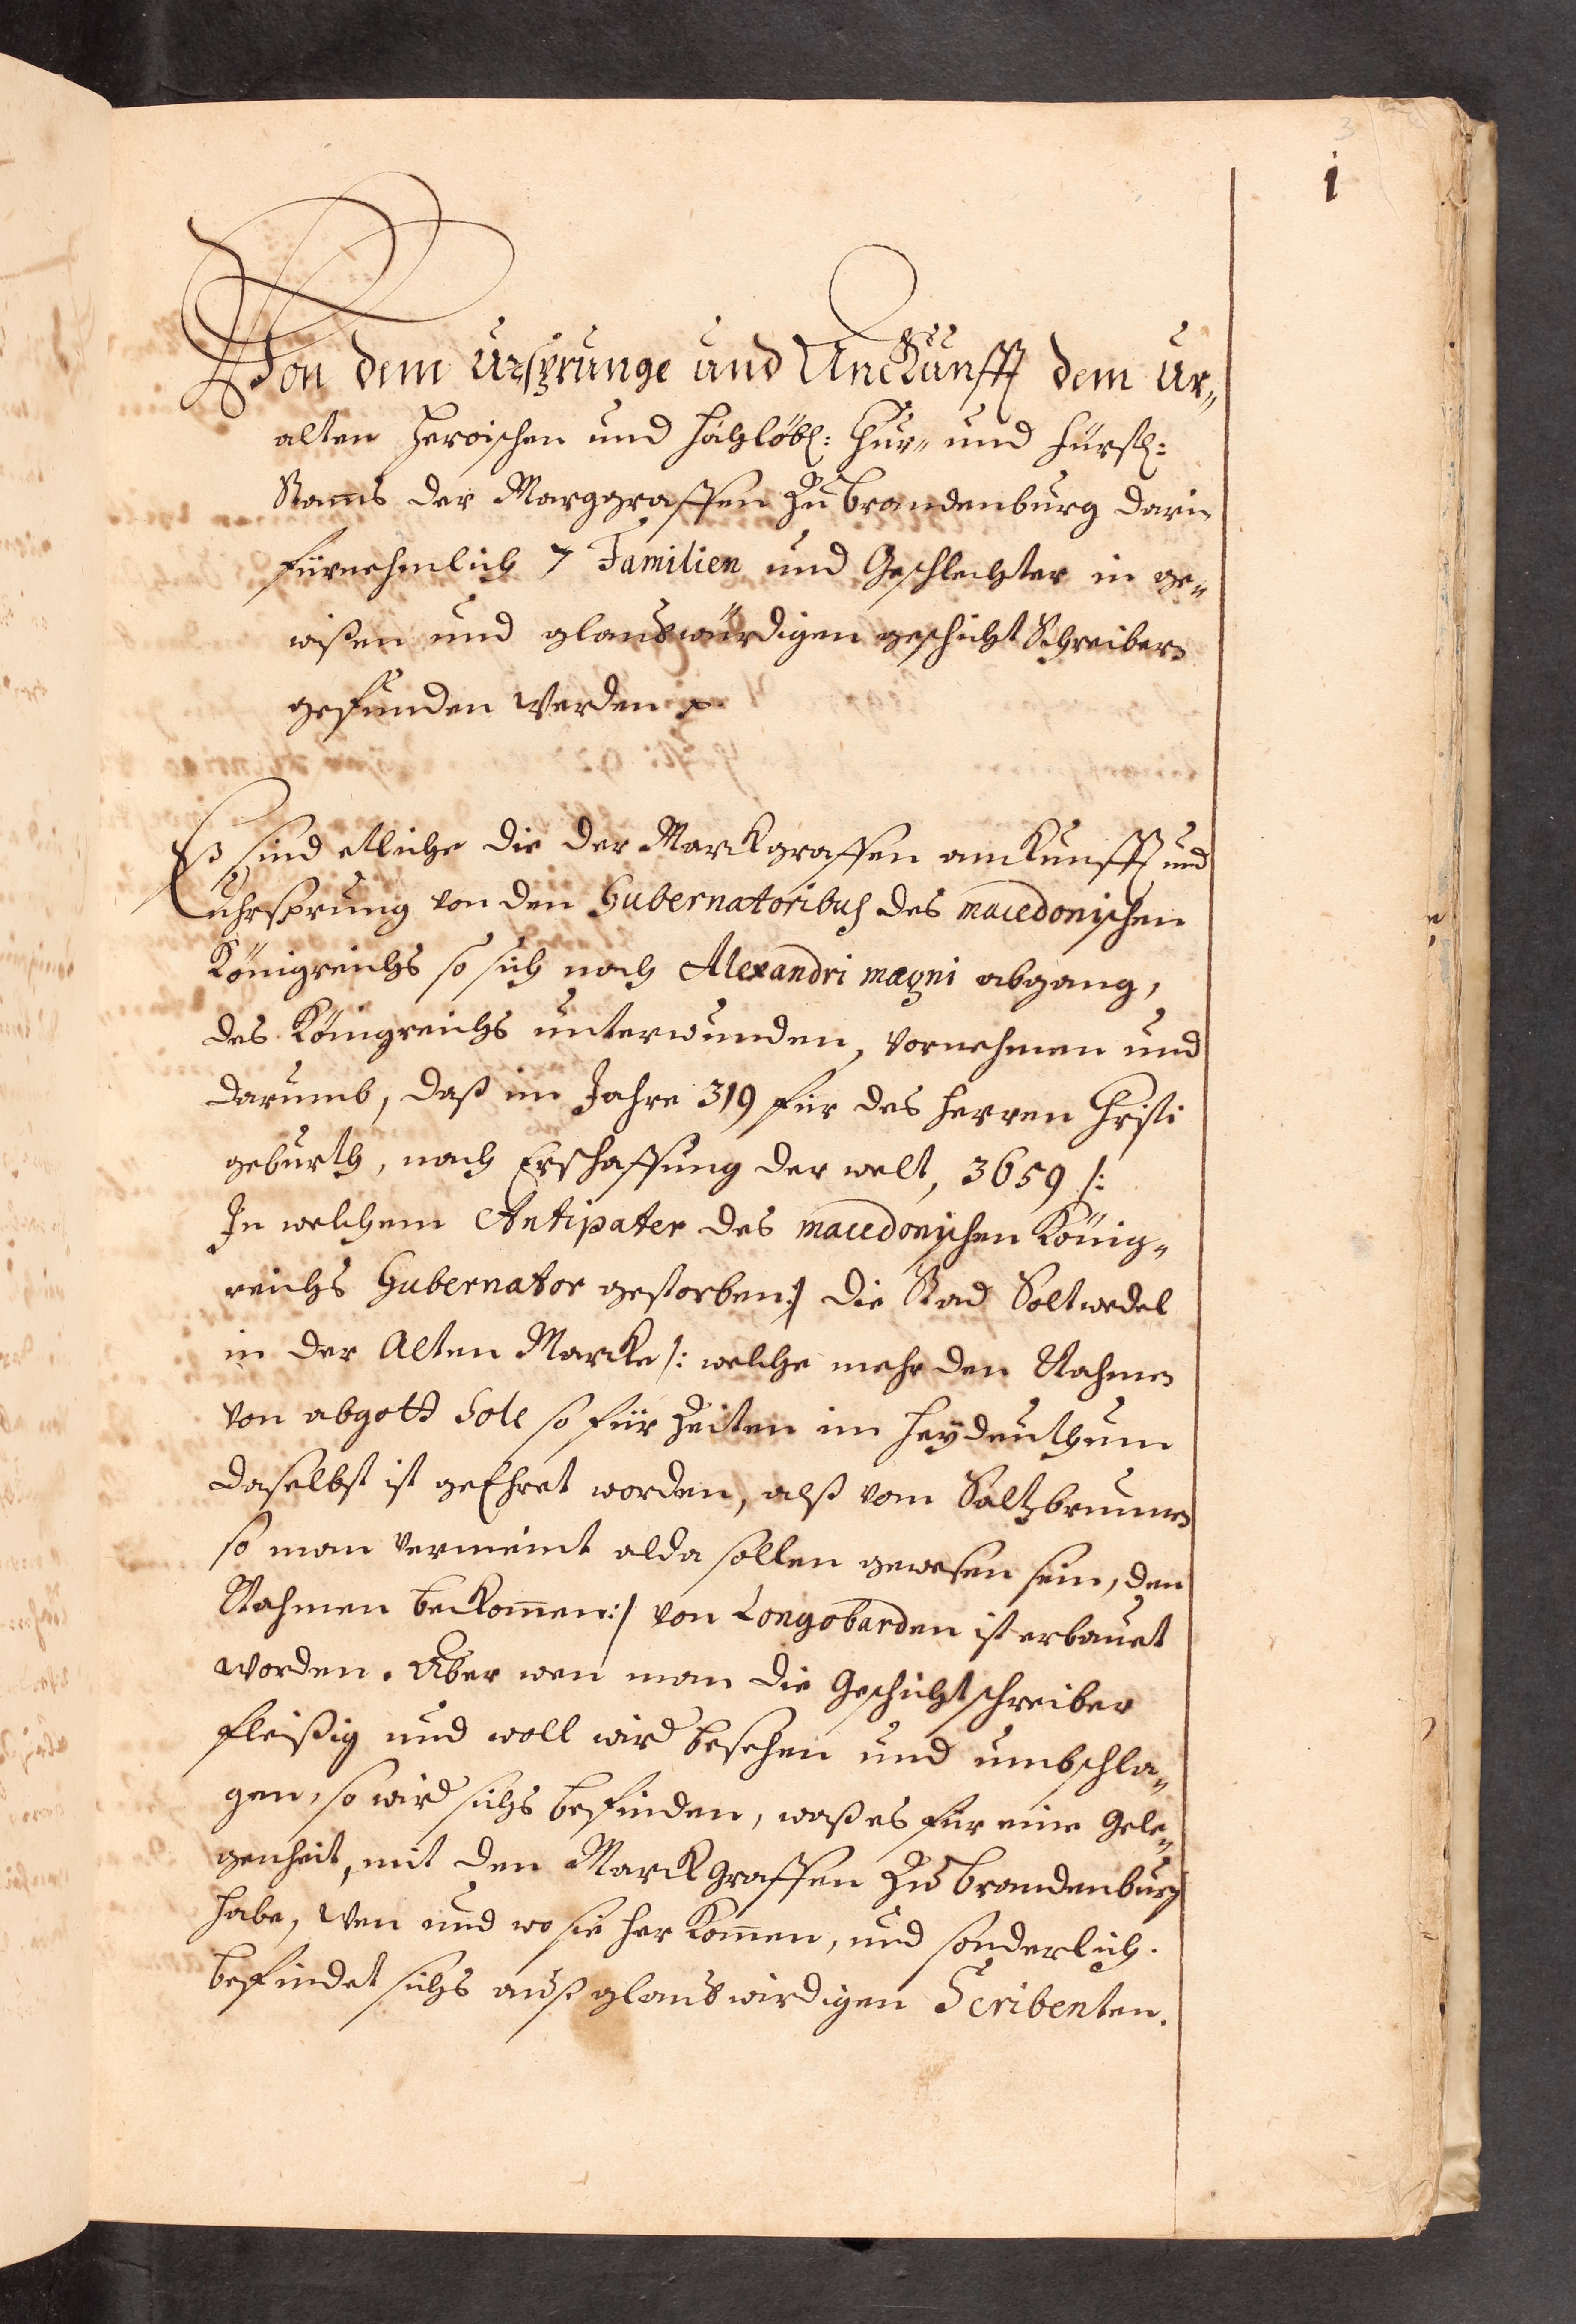 3
1
Von dem Ursprunge und Anckunfft dem Ur„
alten Heroischen und Hochlöbl: Chur„ und Fürstl:
Stams der Marggraffen Zu Brandenburg darin
fürnehmlich 7 Familien und Geschlechter in ge„
wißen und glaubwürdigen geschicht Schreibern
gefunden werden
Eß sind etliche die der Marckgraffen anckunfft und
uhrsprung von den Gubernatoribus des macedonischen
Königreichs so sich nach Alexandri magni abgang,
des Königreichs unterwunden, vornehmen und
darumb, daß im Jahre 319 für des Herren Christi
geburth, nach Erschaffung der welt, 3659 /:
In welchem Antipater des macedonischen König„
reichs Gubernator gestorben :/ die Stad Soltwedel
in der Alten Marcke /: welche mehr den Nahmen
von abgott Sole so für Zeiten im Heydenthum
daselbst ist geEhret worden, alß vom Saltzbrunnen
so man vermeint alda sollen gewesen sein, den
Nahmen bekommen :/ von Longobarden ist erbauet
worden. Aber wen man die Geschichtschreiber
fleißig und woll wird besehen und umbschla„
gen, so wird sichs befinden, waß es für eine Gele„
genheit, mit den Marckgraffen Zu Brandenburg
habe, wen und wo sie her kommen, und sonderlich.
befindet sichs auß glaubwirdigen Scribenten.